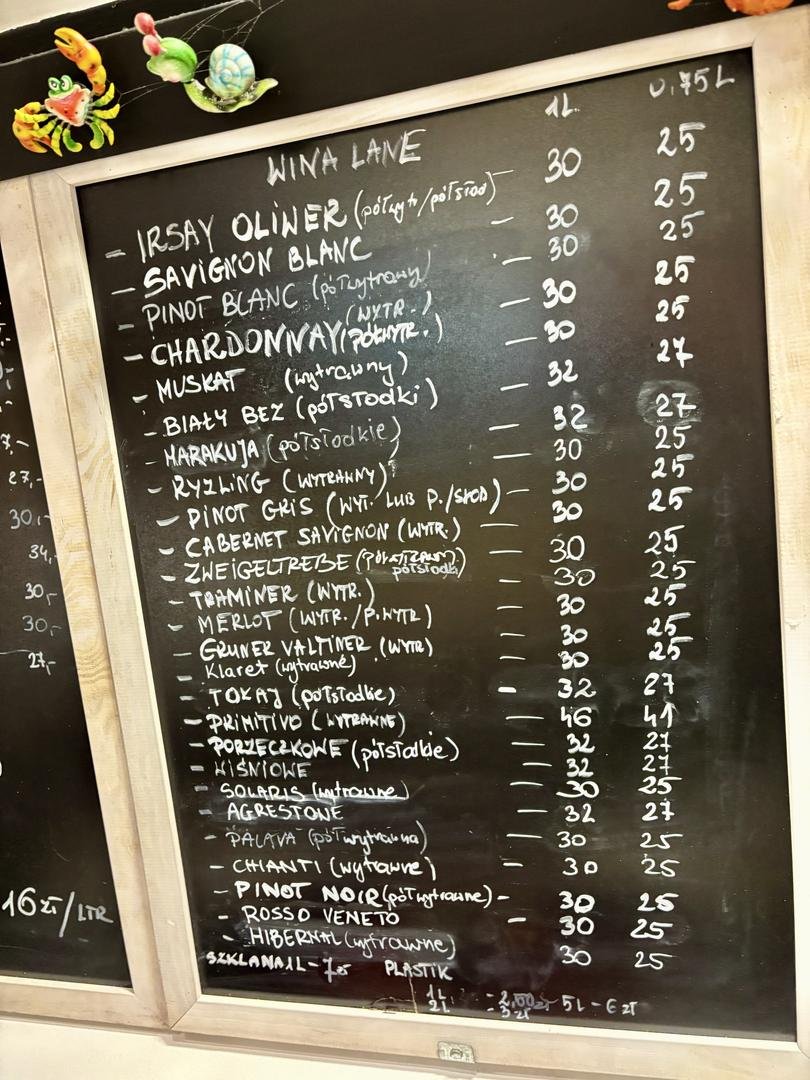 1L. 0,75L
WINA LANE
- IRSAY OLIWER (półwytr/półsłod) - 30 25
- SAVIGNON BLANC - 30 25
- PINOT BLANC (półwytrawny) - 30 25
- CHARDONNAY (WYTR.) (PÓŁWYTR.) - 30 25
- MUSKAT (wytrawny) - 30 25
- BIAŁY BEZ (półsłodki) - 32 27
- MARAKUJA (półsłodkie) - 32 27
- RYZLING (WYTRAWNY) - 30 25
- PINOT GRIS (WYT. LUB P./SŁOD) - 30 25
- CABERNET SAVIGNON (WYTR.) - 30 25
- ZWEIGELTREBE (półsłodki) - 30 25
- TRAMINER (WYTR.) - 30 25
- MERLOT (WYTR./P.WYTR) - 30 25
- GRUNER VALTINER (WYTR) - 30 25
Klaret (wytrawne) - 30 25
- TOKAJ (półsłodkie) - 32 27
- PRIMITIVO (WYTRAWNE) - 46 41
- PORZECZKOWE (półsłodkie) - 32 27
- WIŚNIOWE - 32 27
- SOLARIS (wytrawne) - 30 25
- AGRESTONE - 32 27
- PALAVA (półwytrawna) - 30 25
- CHIANTI (wytrawne) - 30 25
- PINOT NOIR (półwytrawne) - 30 25
- ROSSO VENETO - 30 25
- HIBERNAL (wytrawne) 30 25
SZKLANA 1L - 7zł PLASTIK
1L - 2,00zł 5L - 6 zł
2L - 3 zł
27,-
30,-
34,-
30,-
30,-
27,-
16 zł/LTR